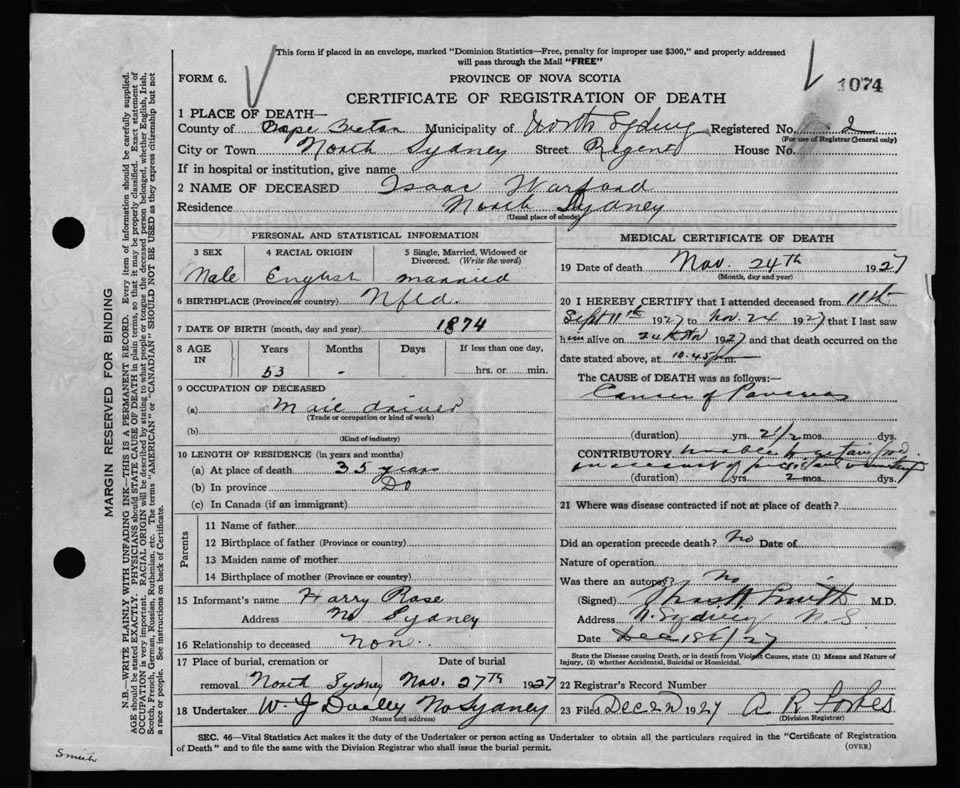 This form if placed in an envelope, marked "Dominion Statistics—Free, penalty for improper use $300," and properly addressed
will pass through the Mail "FREE"
FORM 6.
PROVINCE OF NOVA SCOTIA
1074
CERTIFICATE OF REGISTRATION OF DEATH
1 PLACE OF DEATH—
County of Cape Breton Municipality of North Sydney Registered No. 2
(For use of Registrar General only)
City or Town North Sydney Street Regent House No.
If in hospital or institution, give name
2 NAME OF DECEASED Isaac Warford
Residence North Sydney
(Usual place of abode)
PERSONAL AND STATISTICAL INFORMATION
3 SEX 4 RACIAL ORIGIN 5 Single, Married, Widowed or Divorced. (Write the word)
Male English married
6 BIRTHPLACE (Province or country) Nfld.
7 DATE OF BIRTH (month, day and year) 1874
8 AGE IN Years Months Days If less than one day,
53 - hrs. or min.
9 OCCUPATION OF DECEASED
(a) Mail driver
(Trade or occupation or kind of work)
(b)
(Kind of industry)
10 LENGTH OF RESIDENCE (in years and months)
(a) At place of death 35 years
(b) In province Do
(c) In Canada (if an immigrant)
Parents
11 Name of father
12 Birthplace of father (Province or country)
13 Maiden name of mother
14 Birthplace of mother (Province or country)
15 Informant's name Harry Rose
Address No Sydney
16 Relationship to deceased None.
17 Place of burial, cremation or Date of burial
removal North Sydney Nov. 27th 1927
18 Undertaker W. J Dooley No Sydney
(Name and address)
MEDICAL CERTIFICATE OF DEATH
19 Date of death Nov. 24th 1927
(Month, day and year)
20 I HEREBY CERTIFY that I attended deceased from 11th
Sept 11th 1927 to Nov. 24 1927 that I last saw
him alive on 24th Nov 1927 and that death occurred on the
date stated above, at 10.45 p m.
The CAUSE OF DEATH was as follows:—
Cancer of Pancreas
(duration) yrs. 2 1/2 mos. dys.
CONTRIBUTORY unable to retain food
on account of vomiting
(duration) yrs. 2 mos. dys.
21 Where was disease contracted if not at place of death?
Did an operation precede death? No Date of
Nature of operation
Was there an autopsy? No
(Signed) Smith M.D.
Address N. Sydney N.S.
Date Dec 18th/27
State the Disease causing Death, or in death from Violent Causes, state (1) Means and Nature of
Injury, (2) whether Accidental, Suicidal or Homicidal.
22 Registrar's Record Number
23 Filed Dec 1927 A R Forbes
(Division Registrar)
SEC. 46—Vital Statistics Act makes it the duty of the Undertaker or person acting as Undertaker to obtain all the particulars required in the "Certificate of Registration
of Death" and to file the same with the Division Registrar who shall issue the burial permit.
(OVER)
MARGIN RESERVED FOR BINDING
N.B.—WRITE PLAINLY WITH UNFADING INK—THIS IS A PERMANENT RECORD. Every item of information should be carefully supplied.
AGE should be stated EXACTLY. PHYSICIANS should STATE CAUSE OF DEATH in plain terms, so that it may be properly classified. Exact statement of
OCCUPATION is very important. RACIAL ORIGIN will be described by stating to what people or tongue the deceased person belonged, whether English, Irish,
Scotch, French, German, Russian, Ruthenian, etc. The terms "AMERICAN" or "CANADIAN" SHOULD NOT BE USED as they express citizenship but not
a race or people. See instructions on back of Certificate.
Smith